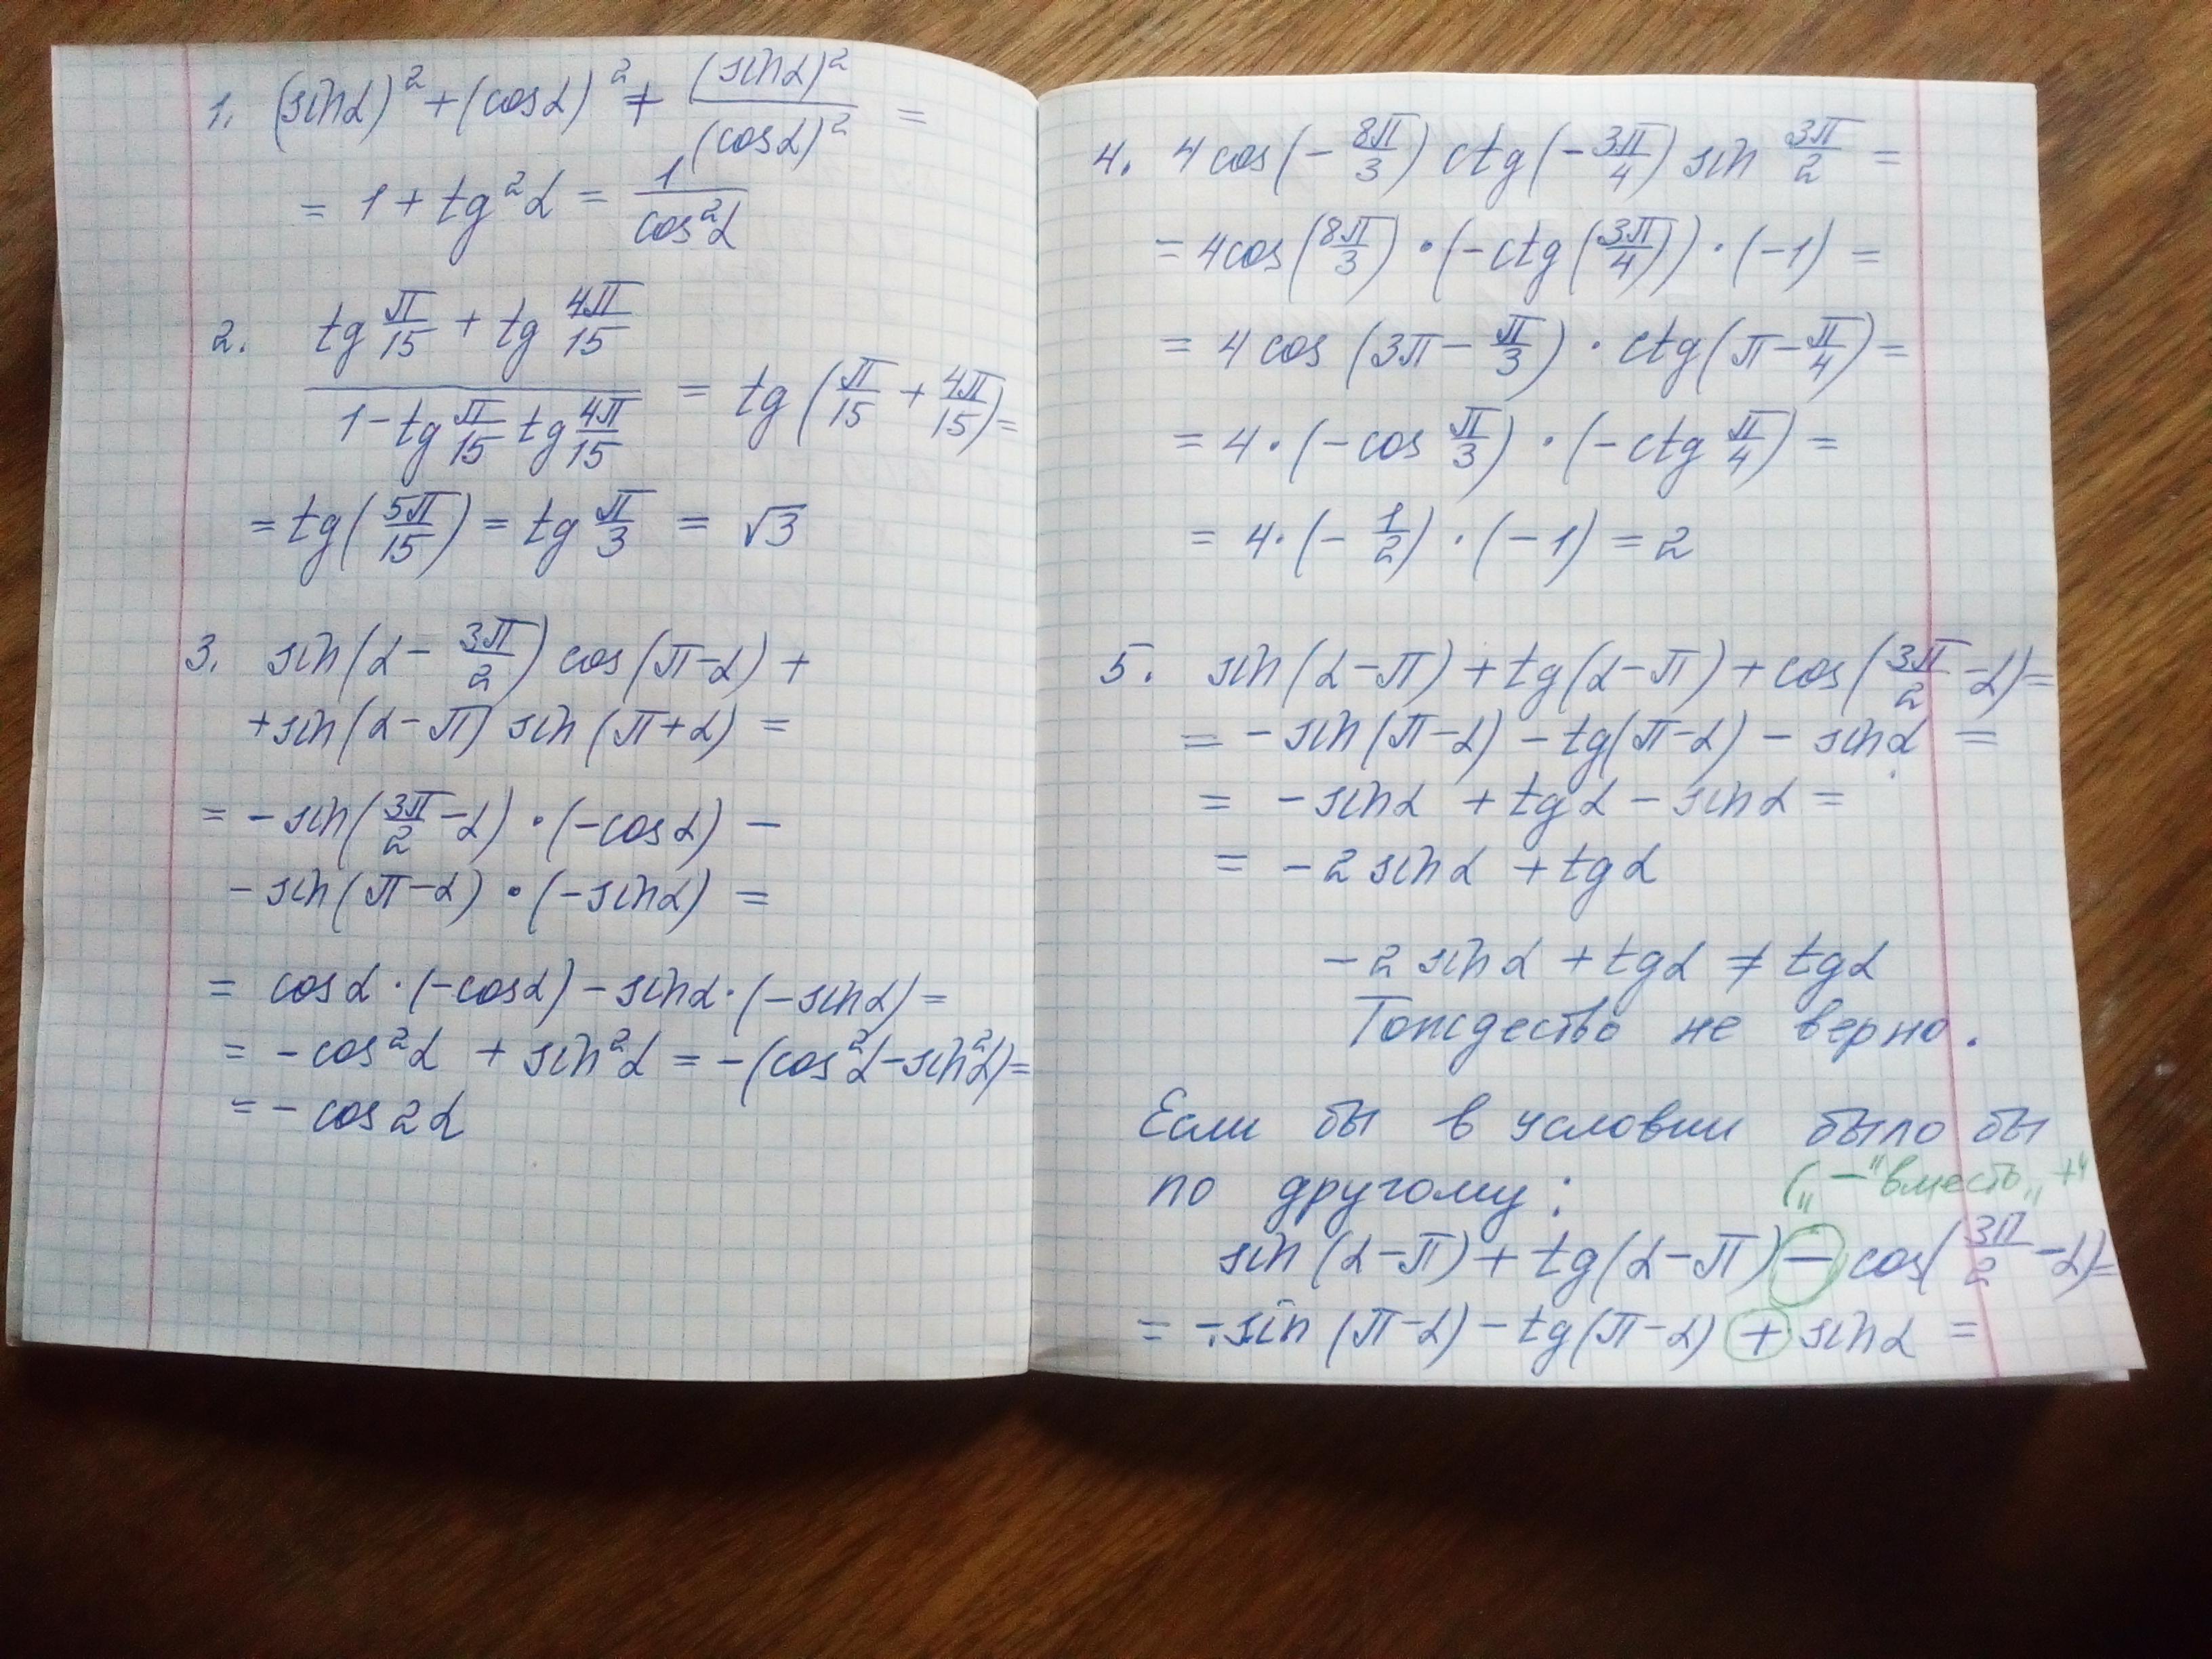 1. (sinα)² + (cosα)² + (sinα)²/(cosα)² =
= 1 + tg²α = 1/cos²α
2. (tg π/15 + tg 4π/15)/(1 - tg π/15 tg 4π/15) = tg(π/15 + 4π/15) =
= tg(5π/15) = tg π/3 = √3
3. sin(α - 3π/2) cos(π - α) +
+ sin(α - π) sin(π + α) =
= - sin(3π/2 - α) · (-cosα) -
- sin(π - α) · (-sinα) =
= cosα · (-cosα) - sinα · (-sinα) =
= - cos²α + sin²α = -(cos²α - sin²α) =
= - cos2α
4. 4cos(- 8π/3) ctg(- 3π/4) sin 3π/2 =
= 4cos(8π/3) · (-ctg(3π/4)) · (-1) =
= 4cos(3π - π/3) · ctg(π - π/4) =
= 4 · (-cos π/3) · (-ctg π/4) =
= 4 · (- 1/2) · (-1) = 2
5. sin(α - π) + tg(α - π) + cos(3π/2 - α) =
= - sin(π - α) - tg(π - α) - sinα =
= - sinα + tgα - sinα =
= - 2sinα + tgα
- 2sinα + tgα ≠ tgα
Тождество не верно.
Если бы в условии было бы
по другому: („-" вместо „+"
sin(α - π) + tg(α - π) - cos(3π/2 - α) =
= - sin(π - α) - tg(π - α) + sinα =